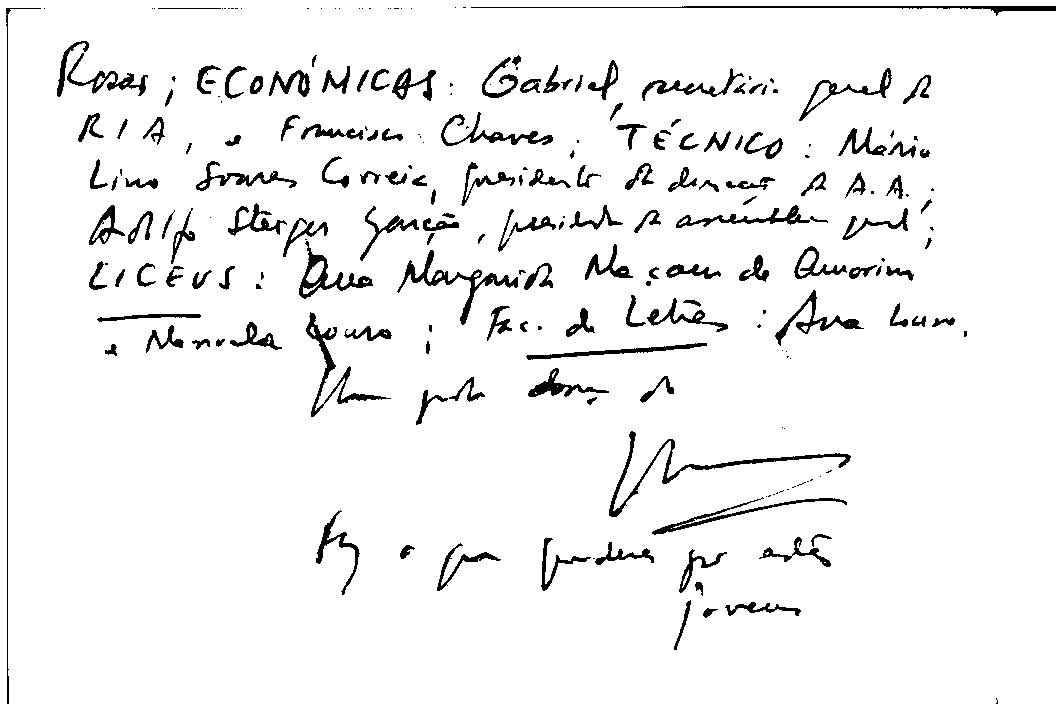 Rosas; ECONÓMICAS: Gabriel, secretário geral da
RIA, e Francisco Chaves; TÉCNICO: Mário
Lino Soares Correia, presidente da direcção da A.A.;
Adolfo Steiger Garção, presidente da assembleia geral;
LICEUS: Ana Margarida de Amorim
e Manuela Louro; Fac. de Letras: Ana Louro.
Um
Faz o que puderes por estes
jovens